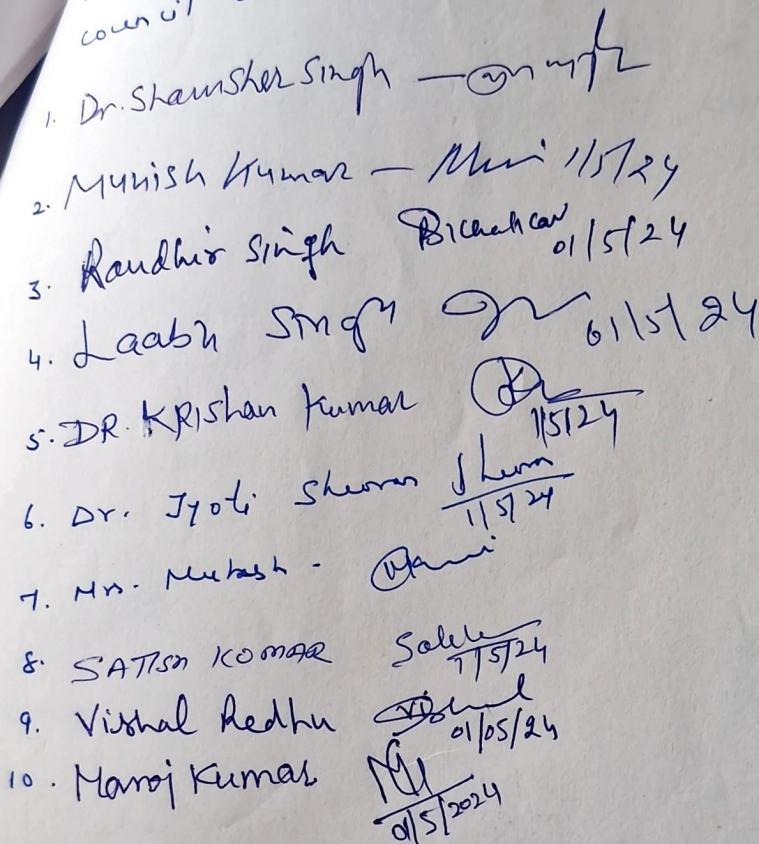 council
1. Dr. Shamsher Singh —
2. Munish Kumar — 1/5/24
3. Randhir Singh 01/5/24
4. Laabh Singh 01/5/24
5. DR. KRIShan Kumar 1/5/24
6. Dr. Jyoti Sheoran 1/5/24
7. Mr. Mukesh -
8. SATISH KUMAR 1/5/24
9. Vishal Redhu 01/05/24
10. Manoj Kumar 01/5/2024